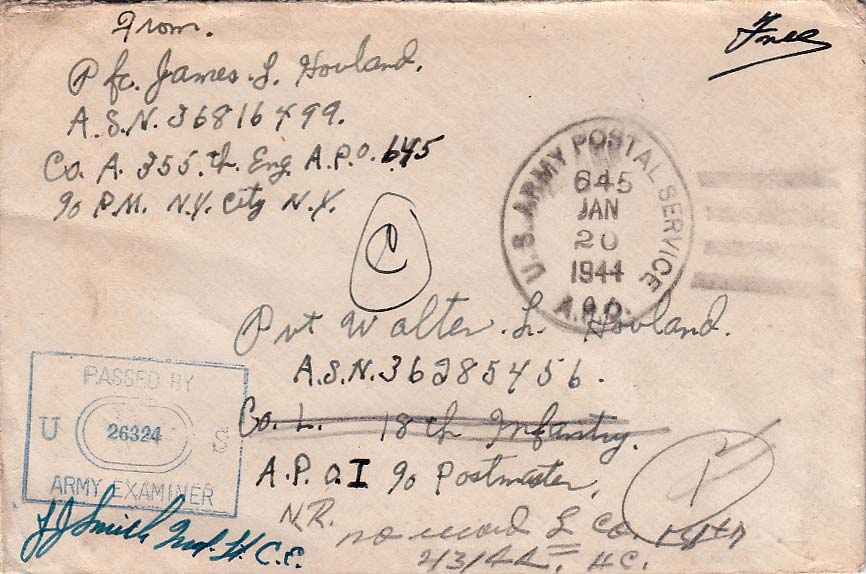 From.
Free
Pfc. James L. Hovland.
A.S.N. 36816499.
Co. A. 355.th Eng A.P.O. 645
℅ P.M. N.Y. City N.Y.
U.S. ARMY POSTAL SERVICE
645
JAN
20
1944
A.P.O.
C
Pvt Walter. L. Hovland.
A.S.N. 36285456.
Co. L. 18th Infantry.
A.P.O. 1 ℅ Postmaster,
PASSED BY
U 26324 S
ARMY EXAMINER
N.R.
no record L Co. 18th
2/3/44 HC.